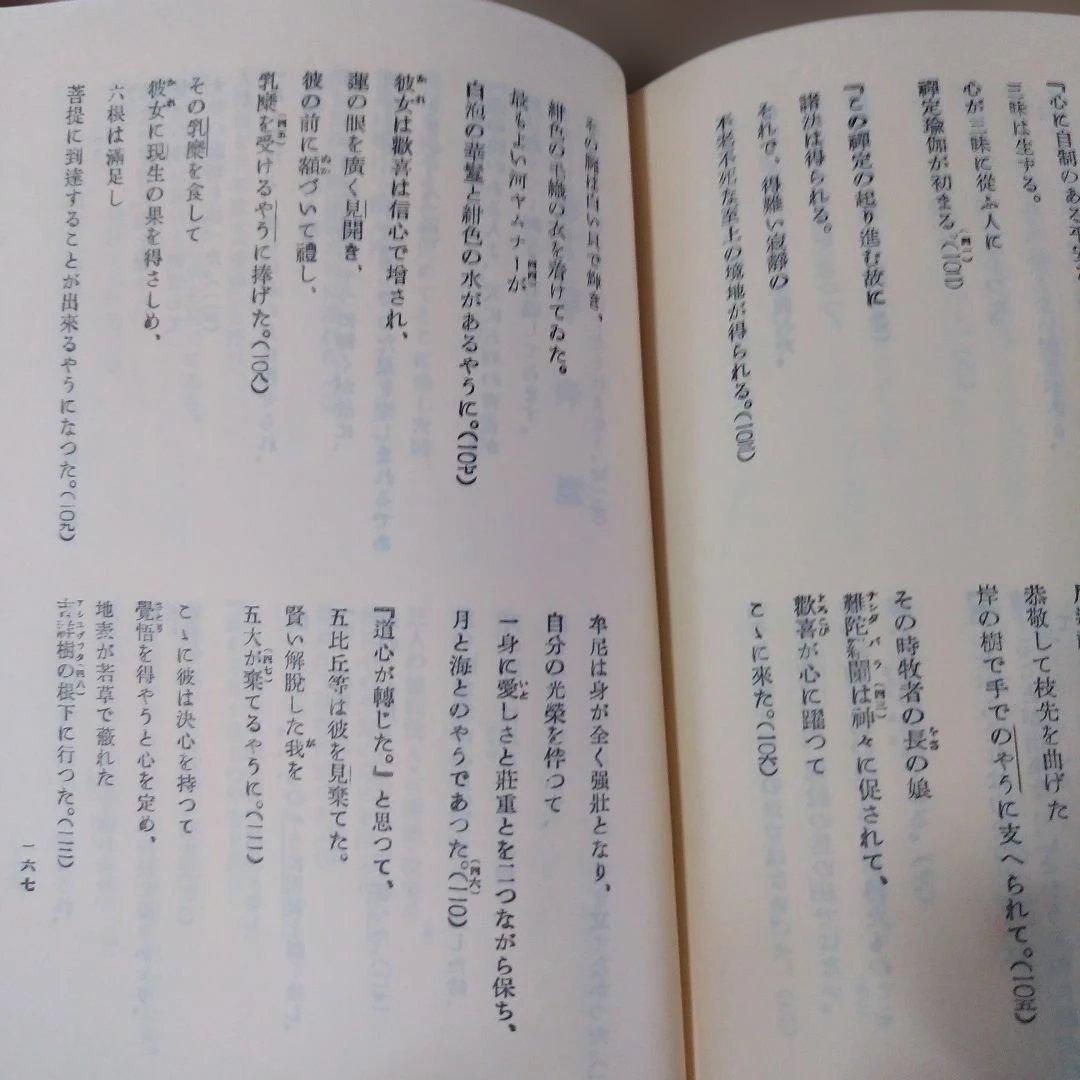 『心に自制のある平安
三昧は生ずる。
心が三昧に從ふ人に
禪定瑜伽が初まる。(四二)(一〇二)
『この禪定の起り進む故に
諸法は得られる。
それで、得難い寂靜の
不老不死な至上の境地が得られる。(一〇三)
恭敬して枝先を曲げた
岸の樹で手でのやうに支へられて。(一〇五)
その時牧者の長の娘
難陀婆闌は神々に促されて、
歡喜が心に躍つて
こゝに來た。(一〇六)
その腕は白い貝で輝き、
紺色の毛織の衣を着けてゐた。
最もよい河ヤムナーが
白泡の華鬘と紺色の水があるやうに。(一〇七)
彼女は歡喜は信心で增され、
蓮の眼を廣く見開き、
彼の前に額づいて禮し、
乳糜を受けるやうに捧げた。(一〇八)
その乳糜を食して
彼女に現生の果を得さしめ、
六根は滿足し
菩提に到達することが出來るやうになつた。(一〇九)
牟尼は身が全く强壯となり、
自分の光榮を伴つて
一身に愛しさと莊重とを二つながら保ち、
月と海とのやうであつた。(四六)(一一〇)
『道心が轉じた。』と思つて、
五比丘等は彼を見棄てた。
賢い解脫した我を
五大が棄てるやうに。(一一一)
こゝに彼は決心を持つて
覺悟を得やうと心を定め、
地麦が若草で蔽れた
吉祥樹の根下に行つた。(一一二)
一六七